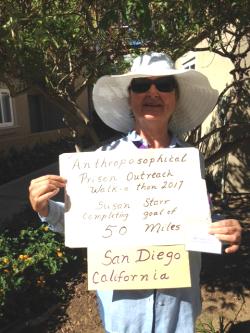 Anthroposophical
Prison Outreach
Walk-a thon 2017
Susan Starr
Completing goal of
50 Miles
San Diego
California